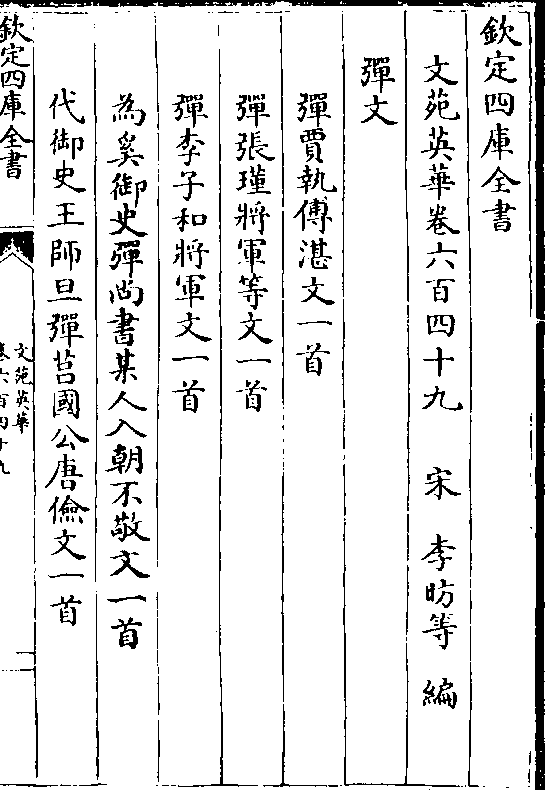 欽定四庫全書
文苑英華卷六百四十九 宋 李昉等 編
彈文
彈賈執傅湛文一首
彈張瑾將軍等文一首
彈李子和將軍文一首
為奚御史彈尚書某人入朝不敬文一首
代御史王師旦彈莒國公唐儉文一首
欽定四庫全書
文苑英華
卷六百四十九
一